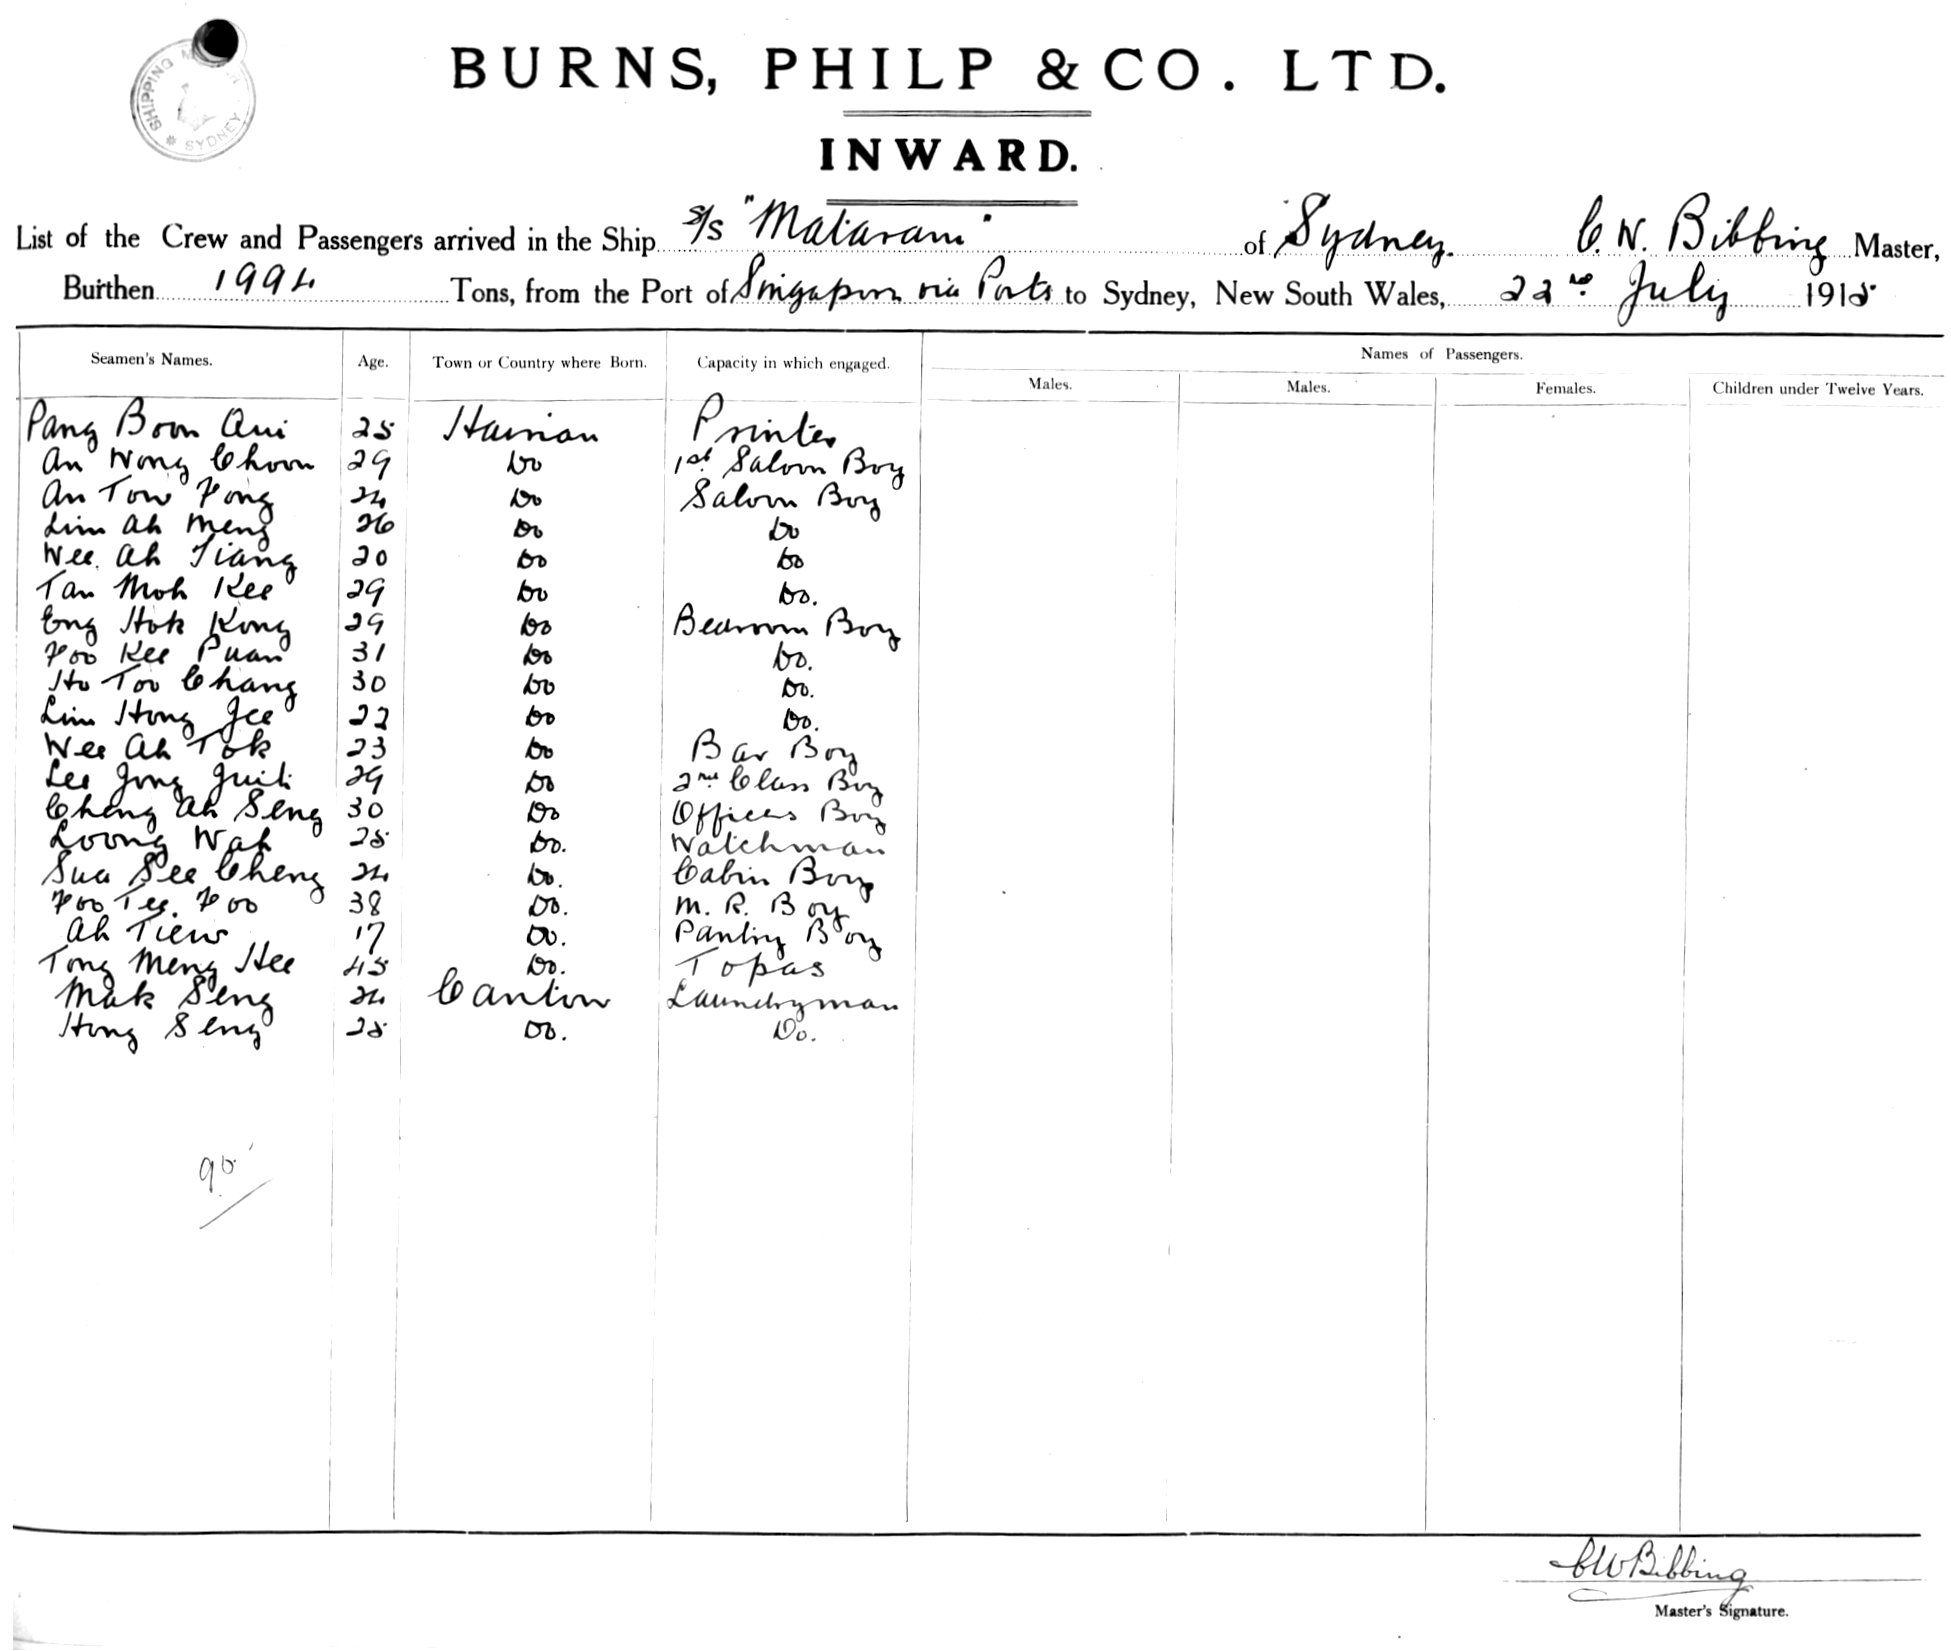 SHIPPING SYDNEY
BURNS, PHILP & CO. LTD.
INWARD.
List of the Crew and Passengers arrived in the Ship S/S "Mataram" of Sydney. C. W. Bibbing Master,
Burthen 1994 Tons, from the Port of Singapore via Ports to Sydney, New South Wales, 22nd July 1915
Names of Passengers.
Seamen's Names. Age. Town or Country where Born. Capacity in which engaged. Males. Males. Females. Children under Twelve Years.
Pang Boon 25 Hainan Printer
An Wong Choon 29 Do 1st Saloon Boy
An Tow Fong 24 Do Saloon Boy
Lim Ah Meng 26 Do Do
Wee Ah Tiang 20 Do Do
Tan Moh Kee 29 Do Do.
Eng Hok Kong 29 Do Bedroom Boy
Foo Kee Puan 31 Do Do.
Ho Too Chang 30 Do Do.
Lim Hong Jee 22 Do Do.
Wee Ah Tok 23 Do Bar Boy
Lee Jong 29 Do 2nd Class Boy
Cheng Ah Seng 30 Do Officers Boy
Loong Wah 25 Do. Watchman
Sua See Cheng 24 Do. Cabin Boy
Foo Tee. Foo 38 Do. M. R. Boy
Ah Tiew 17 Do. Pantry Boy
Tong Meng Hee 45 Do. Topas
Mak Seng 24 Canton Laundryman
Hong Seng 25 Do. Do.
90
CW Bibbing
Master's Signature.